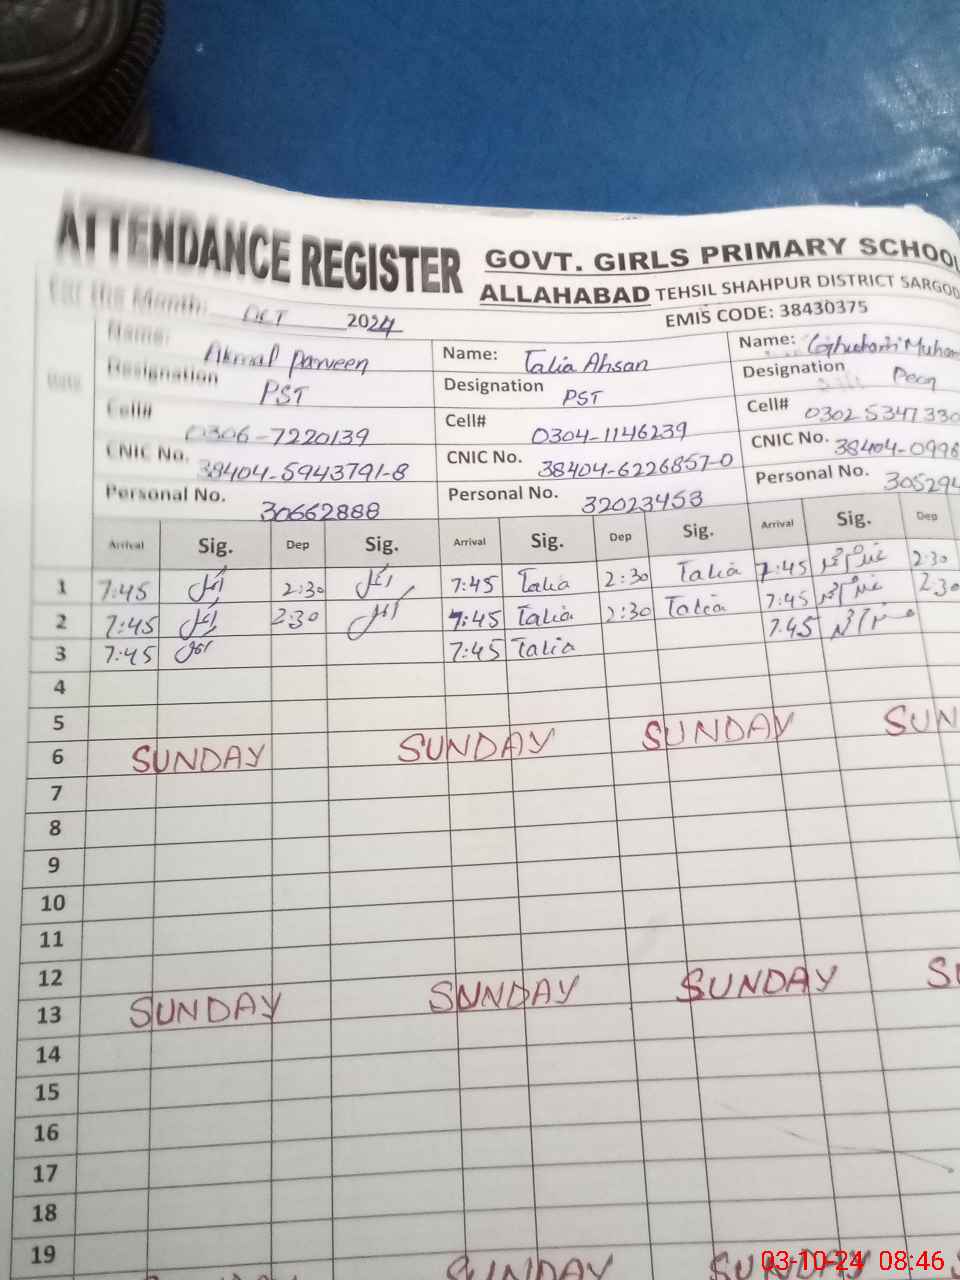 ATTENDANCE REGISTER
GOVT. GIRLS PRIMARY SCHOOL
ALLAHABAD TEHSIL SHAHPUR DISTRICT SARGOD
EMIS CODE: 38430375
For the Month: OCT 2024
Name: Akmal Parveen Name: Talia Ahsan Name: Muham
Designation PST Designation PST Designation Peon
Cell# 0306-7220139 Cell# 0304-1146239 Cell# 0302 5347330
CNIC No. 38404-5943791-8 CNIC No. 38404-6226857-0 CNIC No. 38404-0996
Personal No. 30662888 Personal No. 32023453 Personal No. 305294
Arrival Sig. Dep Sig. Arrival Sig. Dep Sig. Arrival Sig. Dep
1 7:45 2:30 7:45 Talia 2:30 Talia 7:45 2:30
2 7:45 2:30 7:45 Talia 2:30 Talia 7:45 2:30
3 7:45 7:45 Talia 7:45
4
5
6 SUNDAY SUNDAY SUNDAY SUN
7
8
9
10
11
12
13 SUNDAY SUNDAY SUNDAY SU
14
15
16
17
18
19
SUNDAY SUNDAY SUNDAY
03-10-24 08:46